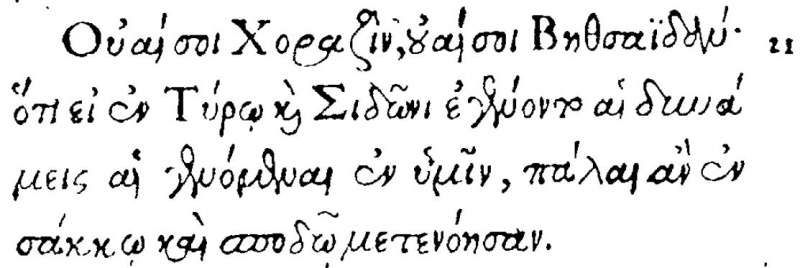 Οὐαί σοι Χοραζίν, οὐαί σοι Βηθσαϊδάν· 21
ὅτι εἰ ἐν Τύρῳ καὶ Σιδῶνι ἐγένοντο αἱ δυνά
μεις αἱ γενόμεναι ἐν ὑμῖν, πάλαι ἂν ἐν
σάκκῳ καὶ σποδῷ μετενόησαν.